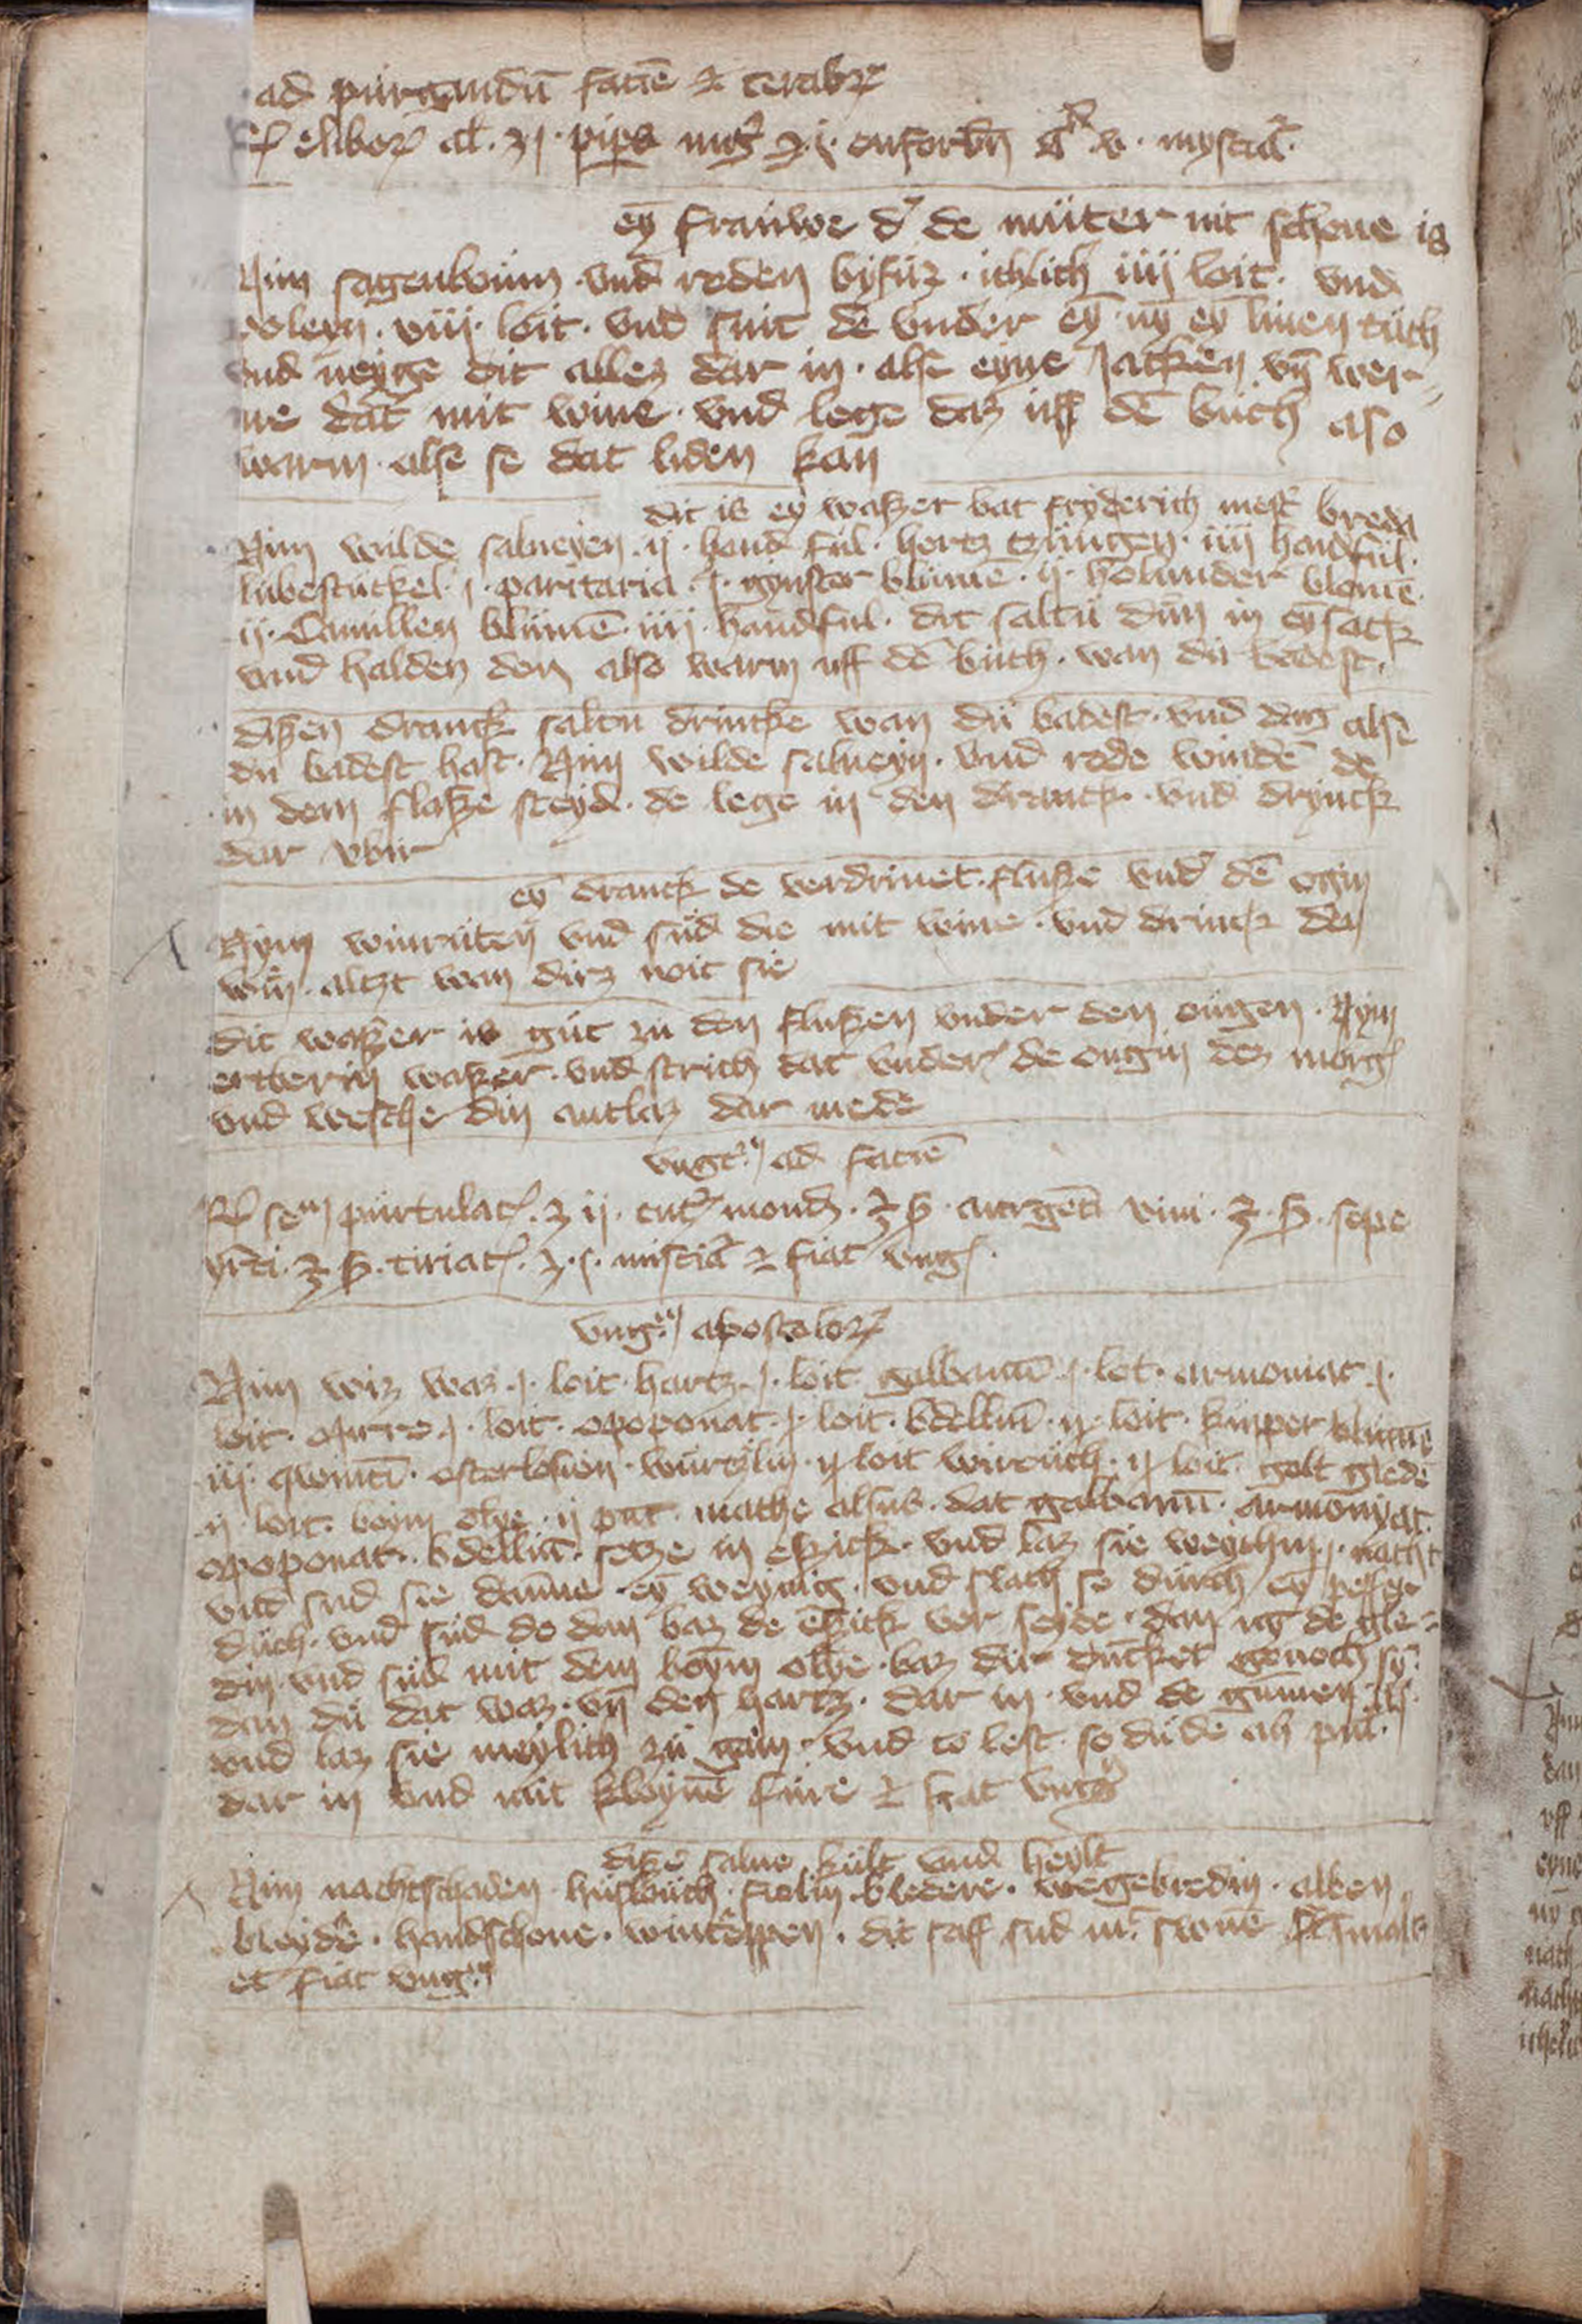 ad purgandū faciē ⁊ cerebꝝ
elleboꝝ al. ʒ j. pip̄is nigͬ ʒ j. euforbij gᵃ v. mysceaͭ.
eȳ frauwe dͬ de muter nit schone is
Nim sagenboum vnd roden byfuz ichlich iiij loit. vnd
poleyn. viij. loit. vnd snit dē vnder eȳ nȳ eȳ linen tuch
vnd neyge dit allez dar in. alse eyne sacken vn̄ wer-
me dat mit wine. vnd lege daz uff dē buch also
warm. alse se dat liden kan
dit is eȳ waßer bat fryderich mestͬ breda
Nim wilde salueyen. ij. hand ful. hertz tzungen. iiij handful.
lubestuckel. j. paritaria. j. gynster blumē. ij. holunder blomē.
ij. Camillen blumē. iiij. handful. dit saltu dun in eȳ sack
vnd halden den also warm uff dē buch. wan du badest.
dißen dranck saltu drincke wan du badest. vnd dan alse
du badest hast. Nim wilde salueyn. vnd rode windē de
in dem flaße steyd. de lege in den dranck. vnd drynck
dar vbir
eȳ dranck de verdriuet fluße vndͬ dē ogin
Nym winruten vnd sud die mit wine. vnd drinck den
win. altzt wan dirz noit sie
dit waßer is gut zu den flußen vnder den ougen. Nym
ertberin waßer. vnd strich dat vnder de ougin dez morgͤ
vnd wesche din antlaz dar mede
vngͭᵐ ad faciē
seͫ purtulac. ʒ ij. argēti viui. ʒ ß. sepe
ʒ ß. tiriac. ʒ j. misceaͭ ⁊ fiat vngͭ.
vngͭᵐ apostoloꝝ
Nim wiz waz. j. loit. hartz. j. loit. galbanū. j. lot. armoniac. j.
loit. mirre. j. loit. opoponac. j. loit. bdelliū. ij. loit. kupper blumē
iij. quintī. osterlosien. wurtzlin. ij loit wirouch. ij loit. golt gledē
ij. loit. boym olye. ij pūt. mache alsus. dat galbanū. armonyac.
opoponac. bdelliū. setze in eßick. vnd laz sie weychin. j. nacht
vnd sud sie danne eȳ weynig. vnd slach se durch eȳ
duch. vnd sud do dan baz de eßick ver seyde. dan nȳ de gle-
din vnd sud mit dem boym olye. baz dir duncket genoch sȳ
dan du dat waz. vn̄ den hartz. dar in. vnd de gumen als.
vnd laz sie meylich zu gain. vnd to lest. so du de ab
dar in vnd mit kleynē fure ⁊ fiat vngͭ
diße salue kult vnd heylt
Nim nachtschaden. huslouch. fiolin bledere. wegebredin. alben
bleydͬe. handschone. wintͬeppen. dit saff sud mͭ swinē schmalz
et fiat vngͭᵐ